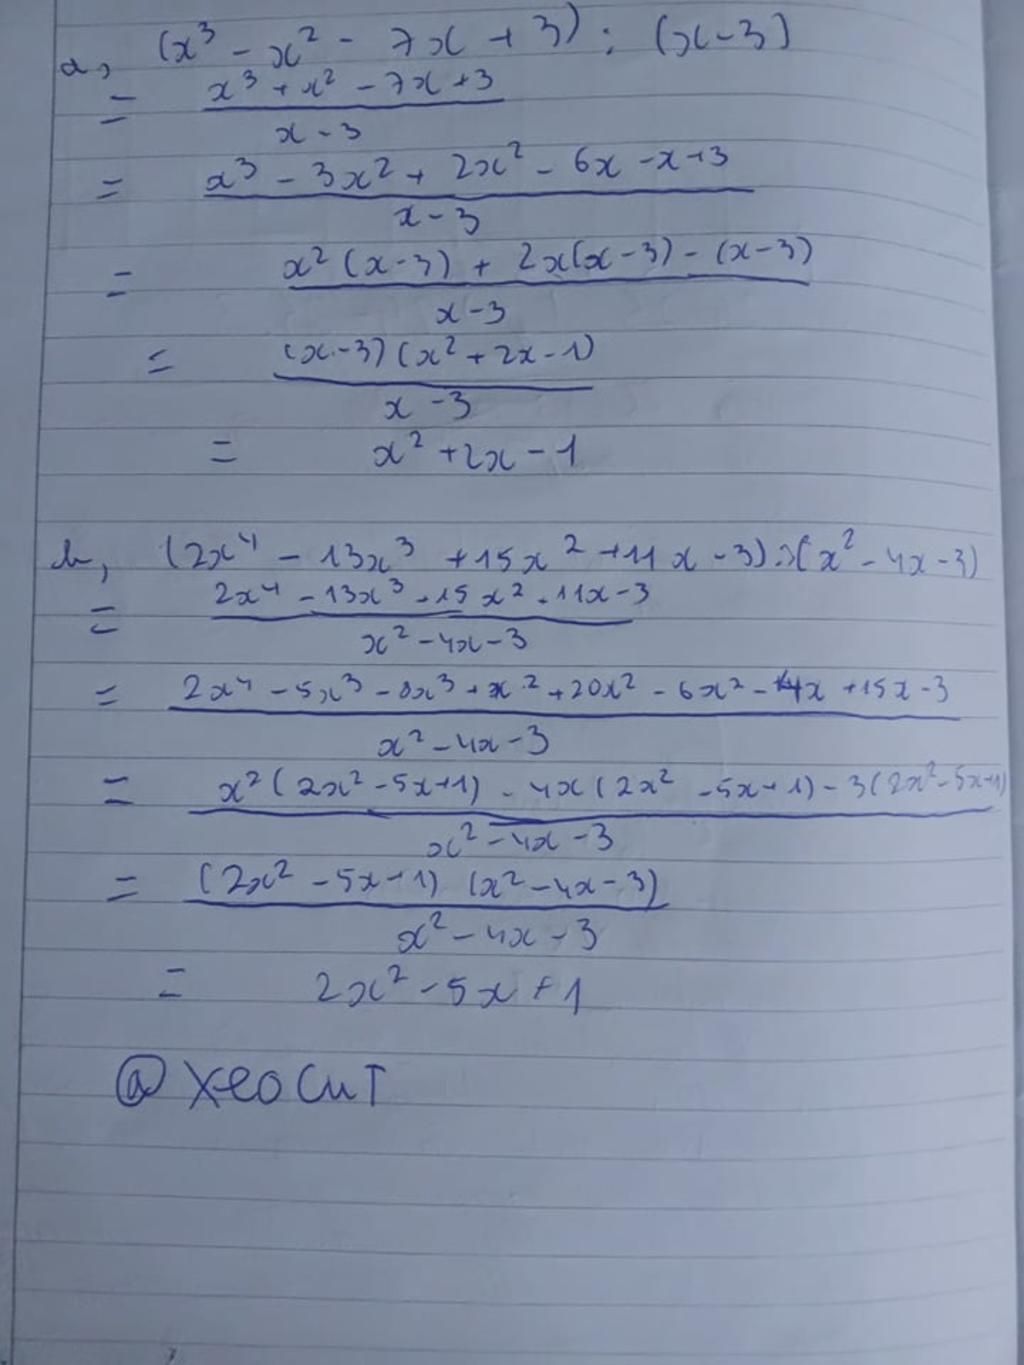 a, (x³ - x² - 7x + 3) : (x-3)
= x³ + x² - 7x + 3
x - 3
= x³ - 3x² + 2x² - 6x - x + 3
x - 3
= x² (x-3) + 2x(x-3) - (x-3)
x-3
= (x-3) (x² + 2x - 1)
x - 3
= x² + 2x - 1
b, (2x⁴ - 13x³ + 15x² + 11x - 3) : (x² - 4x - 3)
= 2x⁴ - 13x³ + 15x² + 11x - 3
x² - 4x - 3
= 2x⁴ - 5x³ - 8x³ + x² + 20x² - 6x² - 4x + 15x - 3
x² - 4x - 3
= x² (2x² - 5x + 1) - 4x (2x² - 5x + 1) - 3 (2x² - 5x + 1)
x² - 4x - 3
= (2x² - 5x + 1) (x² - 4x - 3)
x² - 4x - 3
= 2x² - 5x + 1
@ xeocuT